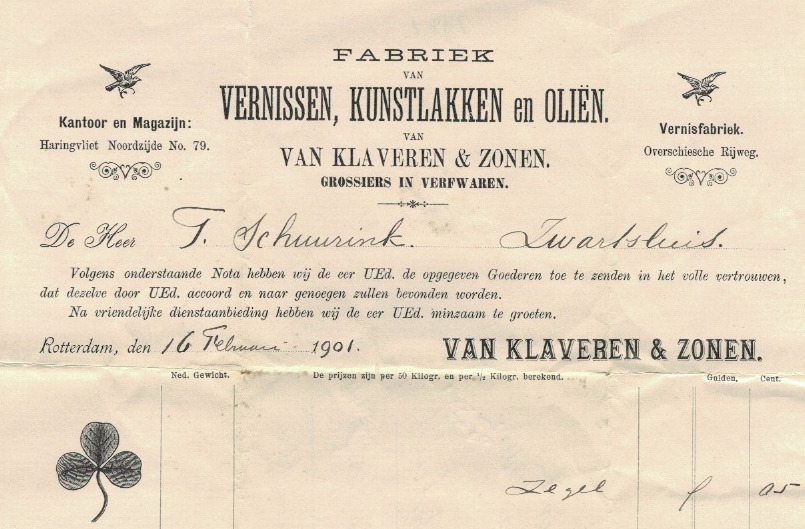 FABRIEK
VAN
VERNISSEN, KUNSTLAKKEN en OLIËN.
VAN
VAN KLAVEREN & ZONEN.
GROSSIERS IN VERFWAREN.
Kantoor en Magazijn:
Haringvliet Noordzijde No. 79.
Vernisfabriek.
Overschiesche Rijweg.
De Heer T. Schuurink. Zwartsluis.
Volgens onderstaande Nota hebben wij de eer UEd. de opgegeven Goederen toe te zenden in het volle vertrouwen,
dat dezelve door UEd. accoord en naar genoegen zullen bevonden worden.
Na vriendelijke dienstaanbieding hebben wij de eer UEd. minzaam te groeten.
Rotterdam, den 16 Februari 1901.
VAN KLAVEREN & ZONEN.
Ned. Gewicht. De prijzen zijn per 50 Kilogr. en per ½ Kilogr. berekend. Gulden. Cent.
Zegel f 05